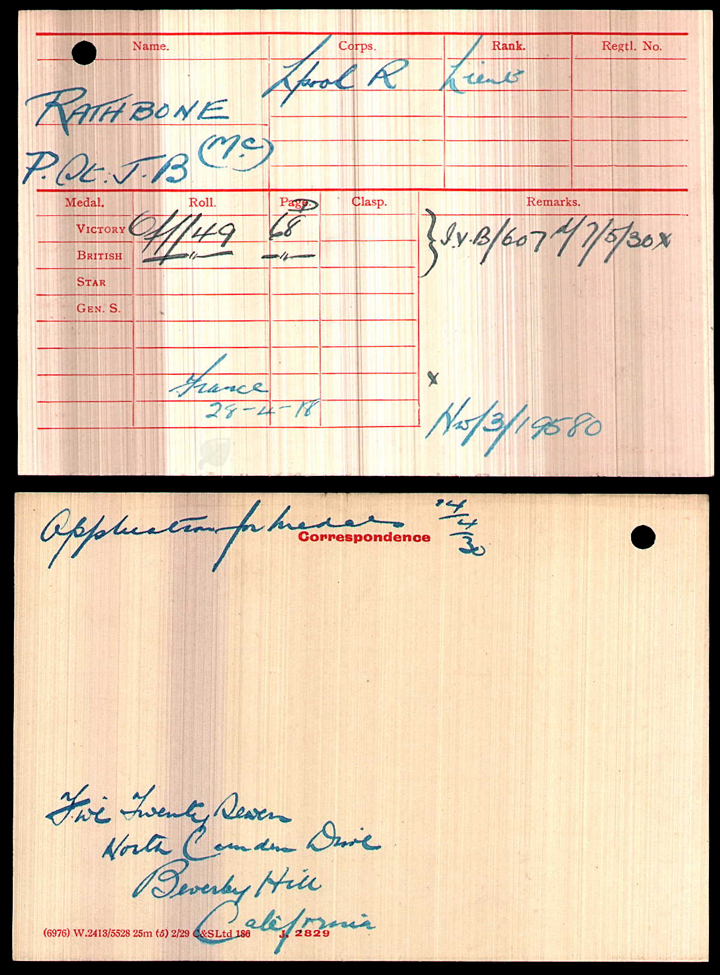 Name. Corps. Rank. Regtl. No.
L'pool R Lieut
RATHBONE
P. St. J. B (M.C)
Medal. Roll. Page. Clasp. Remarks.
VICTORY Off/149 68 } I.V.B/607 d/7/5/30 x
BRITISH —"— —"—
STAR
GEN. S.
France x
28-4-18
NW/3/19580
Application for medals 14/4/30
Correspondence
Five Twenty Seven
North Camden Drive
Beverly Hill
California
(6976) W.2413/5528 25m (5) 2/29 C&SLtd 186 J. 2829